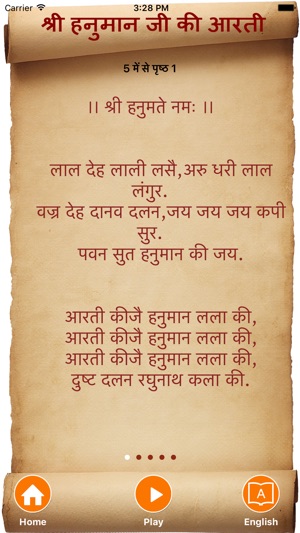 Carrier 3:28 PM
श्री हनुमान जी की आरती
5 में से पृष्ठ 1
।। श्री हनुमते नमः ।।
लाल देह लाली लसै,अरु धरी लाल
लंगुर.
वज्र देह दानव दलन,जय जय जय कपी
सुर.
पवन सुत हनुमान की जय.
आरती कीजै हनुमान लला की,
आरती कीजै हनुमान लला की,
आरती कीजै हनुमान लला की,
दुष्ट दलन रघुनाथ कला की.
A
Home Play English